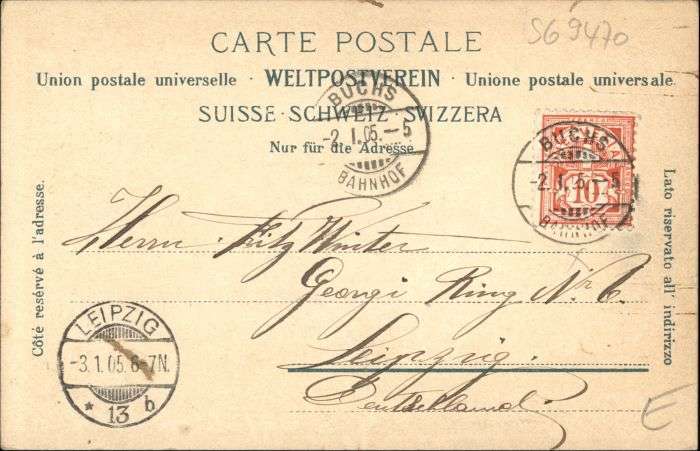 SG 9470
CARTE POSTALE
Union postale universelle · WELTPOSTVEREIN · Unione postale universale
SUISSE · SCHWEIZ · SVIZZERA
Nur für die Adresse
BUCHS
-2. I. 05. -5
BAHNHOF
BUCHS
-2. I. 05 -5
BAHNHOF
10
Côté resérvé à l'adresse.
Lato riservato all' indirizzo
Herrn Fritz Winter
Georgi Ring Nr 6.
Leipzig.
Deutschland
LEIPZIG
-3.1.05. 6-7N.
* 13 b
E